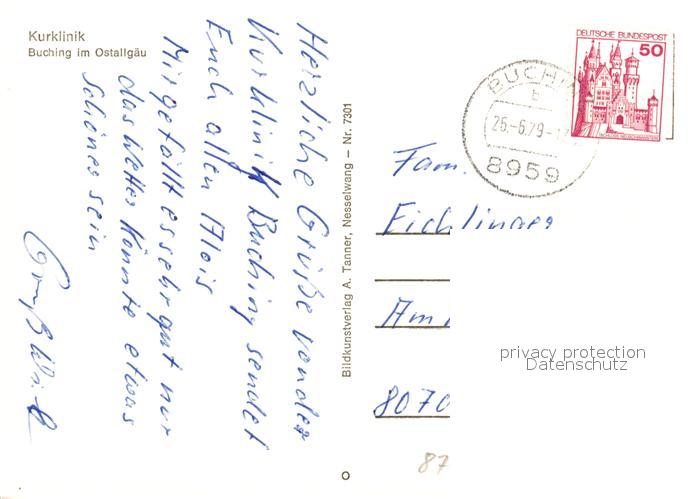 Kurklinik
Buching im Ostallgäu
Herzliche Grüße von der
Kurklinik Buching sendet
Euch allen Alois
Mir gefällt es sehr gut nur
das Wetter könnte etwas
schöner sein
Bildkunstverlag A. Tanner, Nesselwang – Nr. 7301
DEUTSCHE BUNDESPOST
50
SCHLOSS NEUSCHWANSTEIN
BUCHIN
b
26.-6.79-1
8959
Fam.
Eichlinger
Am
8070
87
privacy protection
Datenschutz